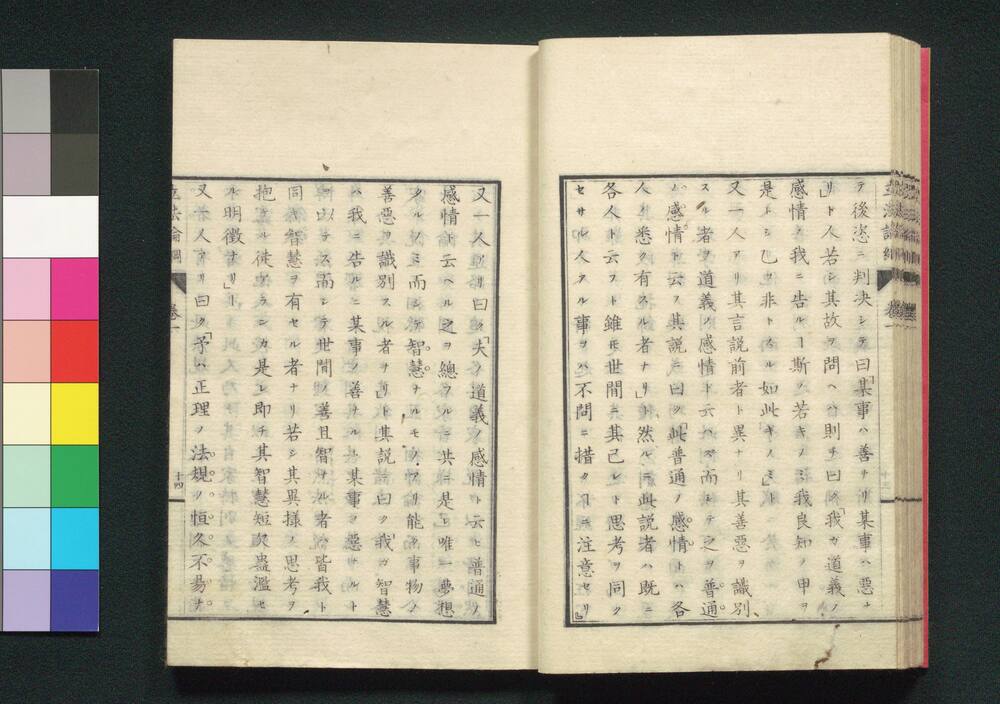 テ後恣ニ判决シテ曰「某事ハ善ナリ某事ハ惡ナ
リ」ト人若シ其故ヲ問ヘハ則チ曰ク「我ガ道義ノ
感情ノ我ニ告ルヿ斯ノ若キノミ我良知ノ甲ヲ
是トシ乙ヲ非トスル如此キノミ」ト
又一人アリ其言説前者ト異ナリ其善惡ヲ識別
スル者ヲ道義ノ感情ト云ハズ而シテ之ヲ普通
ノ感情ト云フ其説ニ曰ク「此普通ノ感情トハ各
人ノ悉ク有スル者ナリ」然ルニ此説者ハ既ニ
各人ト云フト雖モ世間ニ其己レト思考ヲ同ク
セサル人アル事ヲハ不問ニ措キ注意セリ
立法論綱
卷一
十四
又一人アリ曰ク「夫ノ道義ノ感情ト云ヒ普通ノ
感情ト云ヘル之ヲ總フルニ共ニ是レ唯一夢想
タルノミ而シテ智慧ナルモノアリ能ク事物ノ
善惡ヲ識別スル者ヲリ」ト其説ニ曰ク「我ガ智慧
ハ我ニ告ルニ某事ノ善ナル某事ノ惡ナルト
ヲ以テス而シテ世間ノ善且智ナル者ハ皆我ト
同キ智慧ヲ有セル者ナリ若シ其異樣ノ思考ヲ
抱ケル徒アランカ是レ即チ其智慧短欠蠱濫セ
ル明徴ナリ」ト
又一人アリ曰ク「予ハ正理ヲ法規ノ恒久不易ナ
立法論綱
卷一
十四